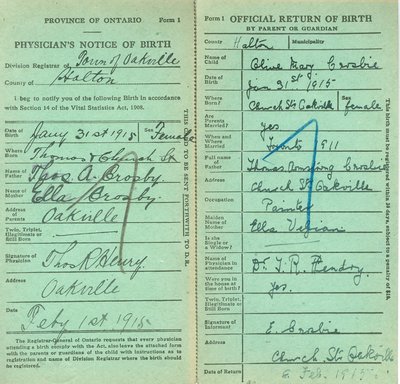 PROVINCE OF ONTARIO Form 1
PHYSICIAN'S NOTICE OF BIRTH
Division Registrar of Town of Oakville
County of Halton
I beg to notify you of the following Birth in accordance
with Section 14 of the Vital Statistics Act, 1908.
Date of Birth Jany 31st 1915 Sex Female
Where Born Thomas & Church St
Name of Father Thos A. Crosby
Name of Mother Ella Crosby
Address of Parents Oakville
Twin, Triplet, Illegitimate or Still Born
Signature of Physician Thos R Henry
Address Oakville
Date Feby 1st 1915
The Registrar-General of Ontario requests that every physician
attending a birth should comply with the Act, also leave the attached form
with the parents or guardians of the child with instructions as to
registration and name of Division Registrar where the birth should be
registered.
THIS CARD TO BE SENT FORTHWITH TO D.R.
Form 1 OFFICIAL RETURN OF BIRTH
BY PARENT OR GUARDIAN
County Halton Municipality
Name of Child Olive Mary Crosbie
Date of Birth Jan 31st 1915
Where Born? Church St Oakville Sex female
Are Parents Married? Yes
When and Where Married Toronto 1911
Full name of Father Thomas Armstrong Crosbie
Address Church St Oakville
Occupation Painter
Maiden Name of Mother Ella Vivian
Is she Single or a Widow?
Name of Physician in attendance Dr. T. R. Hendry
Were you in the house at time of birth? Yes.
Twin, Triplet, Illegitimate or Still Born
Signature of Informant E. Crosbie
Address Church St Oakville
Date of Return 2 Feb. 1915